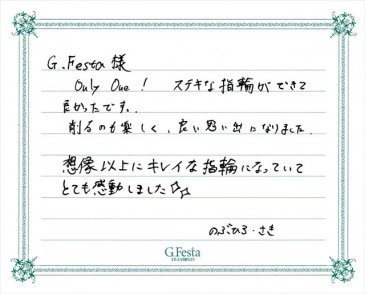 G.Festa 様
Only One! ステキな指輪ができて
良かったです。
削るのも楽しく、良い思い出になりました。
想像以上にキレイな指輪になっていて
とても感動しました☆☆
のぶひろ・さき
G.Festa
DIAMOND